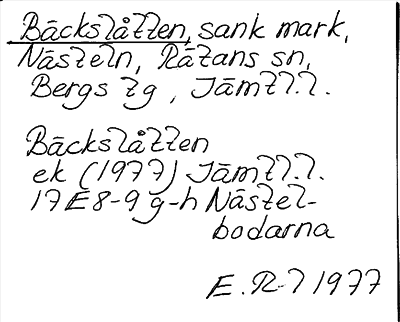 Bäckslåtten, sank mark,
Näszeln, Rätans sn,
Bergs tg, Jämtl.l.
Bäckslåtten
ek (1977) Jämtl.l.
17E8-9g-h Näszel-
bodarna
E.R-l 1977